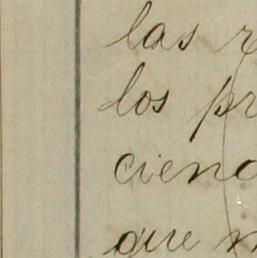 las r
los pr
cienc
que n